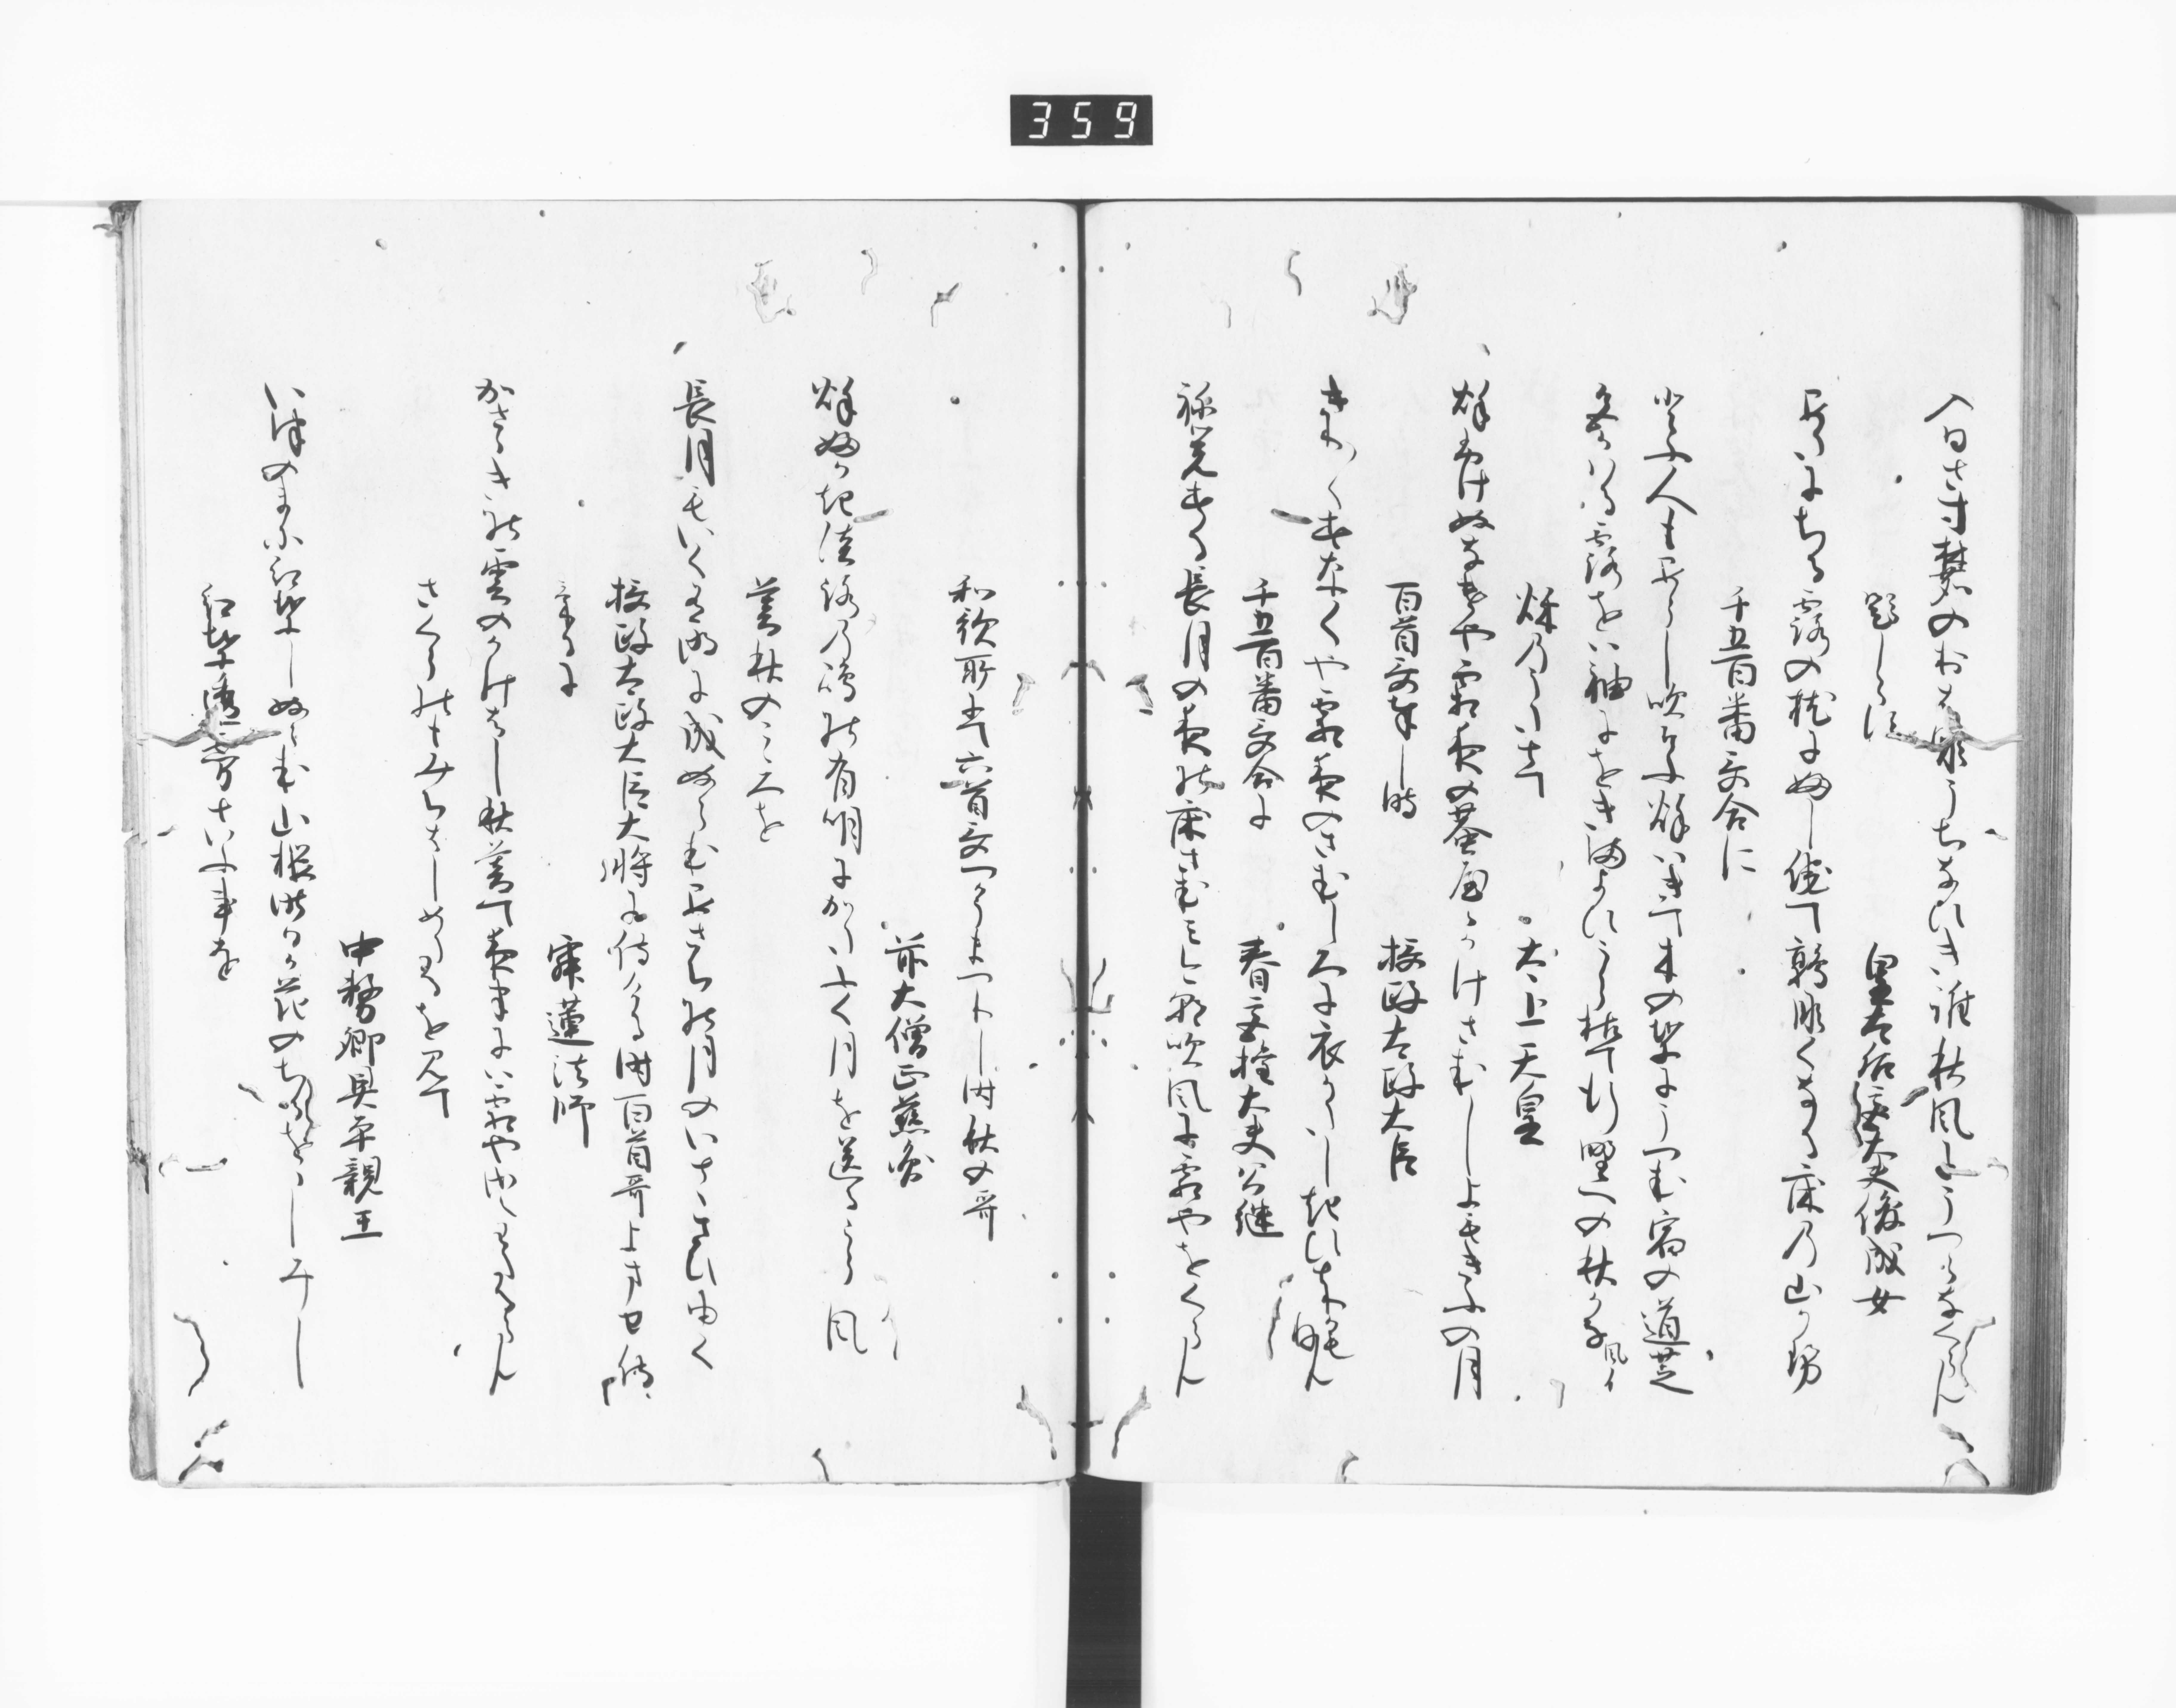 359
入日さす麓のお花うちなひき誰秋風にうつらなくらん
題しらす
皇太后宮大夫俊成女
あたにちる露の枕にふし侘て鶉鳴くなる床の山かせ
千五百番哥合に
とふ人もあらし吹そふ秋はきて木の葉にうつむ宿の道芝
色かはる露をは袖にをき迷ひうら枯て行野への秋かな
風イ
秋の哥とて
太上天皇
秋ふけぬなけや霜夜の蛬やゝかけさむしよもきふの月
百首哥奉し時
摂政太政大臣
きり〳〵すなくや霜夜のさむしろに衣かたしきひとりかもねん
千五百番哥合に
春宮権大夫公継
ね覚する長月の夜の床さむみ今朝吹風に霜やをくらん
和歌所にて六首哥つかうまつりし時秋の哥
前大僧正慈圓
秋ふかき淡路の嶋の有明にかたふく月を送るうら風
暮秋のこゝろを
長月もいく有明に成ぬらむあさちの月のいとゝさひ由く
摂政太政大臣大将に侍ける時百首哥よませ侍
けるに
寂蓮法師
かさゝきの雲のかけはし秋暮て夜半には霜やさえわたるらん
さくらのもみちはしめたるを見て
中務卿具平親王
いつのまに紅葉しぬらむ山桜昨日か花のちるをおしみし
紅葉透霧といふ事を